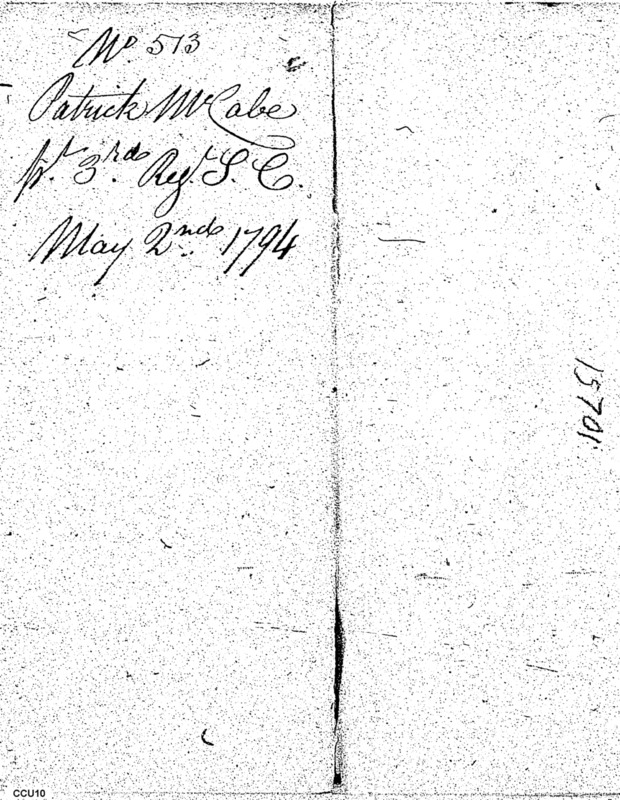 No. 513
Patrick McCabe
pt. 3rd. Regt. S. C.
May 2nd. 1794
15701
CCU10